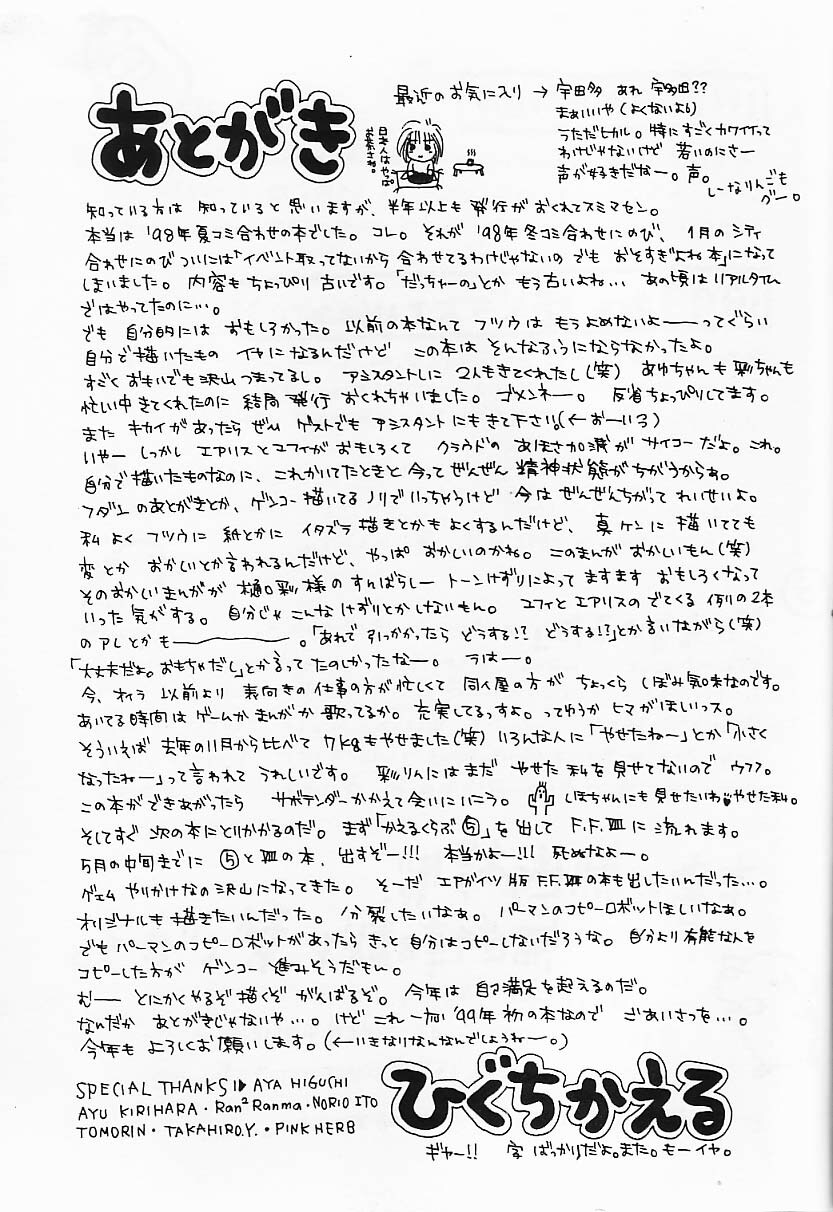 あとがき
最近のお気に入り → 宇田多 あれ 宇多田??
まぁいいや(よくないよ)
うただヒカル。特にすごくカワイイって
わけじゃないけど 若いのにさー
声が好きだなー。声。
しーなりんごも
グー。
日本人はやっぱ
お茶さね。
知っている方は 知っていると思いますが、半年以上も 発行がおくれてスミマセン。
本当は '98年夏コミ合わせの本でした。コレ。それが '98年冬コミ合わせにのび、 1月の シティ
合わせにのび ついには「イベント取ってないから 合わせてるわけじゃないの でも おそすぎよね本」になって
しまいました。 内容もちょっぴり 古いです。「だっちゅーの」とか もう古いよね… あの頃は リアルタイム
ではやってたのに…。
でも 自分的には おもしろかった。以前の本なんて フツウは もうよめないよーーってぐらい
自分で描いたもの イヤになるんだけど この本は そんなふうにならなかったよ。
すごく おもいでも沢山 つまってるし。 アシスタントしに 2人もきてくれたし(笑) あゆちゃんも彩ちゃんも
忙しい中 きてくれたのに 結局 発行 おくれちゃいました。ゴメンネー。 反省ちょっぴりしてます。
また キカイがあったら ぜひ ゲストでも アシスタントにもきて下さい。(←おーいる)
いやー しっかし エアリスとユフィがおもしろくて クラウドの あほさ加減が サイコーだよ。これ。
自分で描いたものなのに、これかいてたときと 今ってぜんぜん 精神状態がちがうからぁ。
フダンのあとがきとか、ゲンコー描いてるノリでいっちゃうけど 今は ぜんぜんちがって れいせいよ。
私 よく フツウに 紙とかに イタズラ描きとかも よくするんだけど、 真ケンに 描いてても
変とか おかしいとか言われるんだけど、やっぱ おかしいのかね。 このまんが おかしいもん(笑)
そのおかしいまんがが 樋口彩様の すばらしー トーンけずりによって ますます おもしろくなって
いった気がする。 自分じゃ こんな けずりとかしないもん。 ユフィと エアリスの でてくる 例の2本
のアレとかも――――。「あれで 引っかかったら どうする!? どうする!?」とか言いながら(笑)
「大丈夫だよ。おもちゃだし」とか言って たのしかったなー。 うはー。
今、オイラ 以前より 表向きの仕事の方が忙しくて 同人屋の方が ちょっくら しぼみ気味なのです。
あいてる時間は ゲームか まんがか 歌ってるか。充実してるっすよ。ってゆうか ヒマがほしいっス。
そういえば 去年の11月から比べて 7kgもやせました(笑) いろんな人に「やせたねー」とか「小さく
なったねー」って言われて うれしいです。 彩りんにはまだ やせた私を見せてないので ウフフ。
この本ができあがったら サボテンダーかかえて会いにいこう。 しほちゃんにも見せたいわ♥やせた私。
そしてすぐ 次の本にとりかかるのだ。まず「かえるくらぶ⑤」を出して F.F.Ⅷに流れます。
5月の中旬までに ⑤とⅧの本、出すぞー!!! 本当かよー!!! 死ぬなよー。
ゲェム やりかけなの 沢山になってきた。 そーだ エアガイツ版 F.F.Ⅶの本も出したいんだった…。
オリジナルも描きたいんだった。 分裂したいなぁ。 パーマンのコピーロボットほしいなぁ。
でも パーマンのコピーロボットがあったら きっと 自分はコピーしないだろうな。 自分より有能な人を
コピーした方が ゲンコー 進みそうだもん。
むーー とにかくやるぞ 描くぞ がんばるぞ。 今年は 自己満足を超えるのだ。
なんだか あとがきじゃないや…。 けど これ 一応 '99年 初の本なので ごあいさつを…。
今年も よろしくお願いします。(←いきなりなんなんでしょうねー。)
SPECIAL THANKS!▶AYA HIGUCHI
AYU KIRIHARA・Ran²Ranma・NORIO ITO
TOMORIN・TAKAHIRO.Y.・PINK HERB
ひぐちかえる
ギャー!! 字 ばっかりだよ。また。もーイヤ。